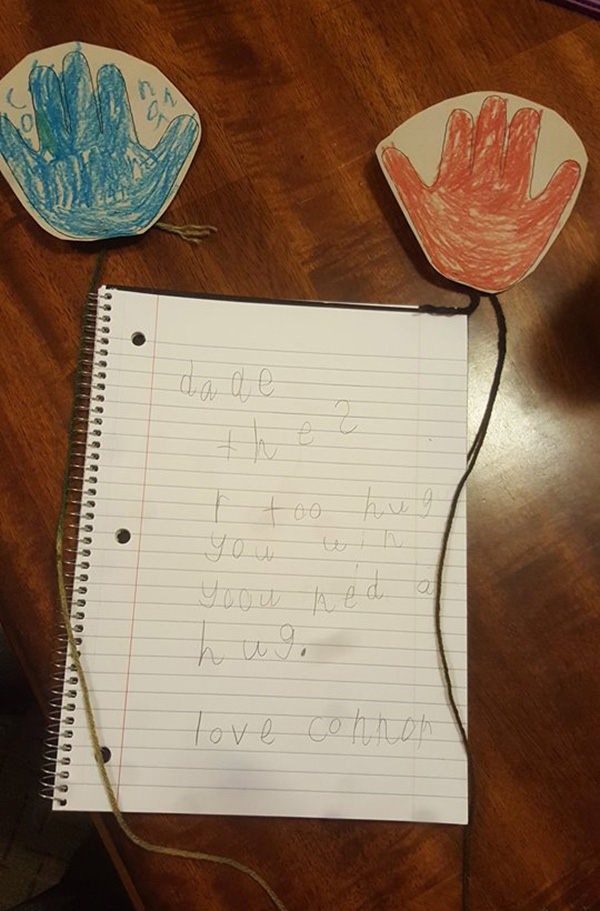 connor
dade
the2
r too hug
you win
yoou ned a
hug.
love connor